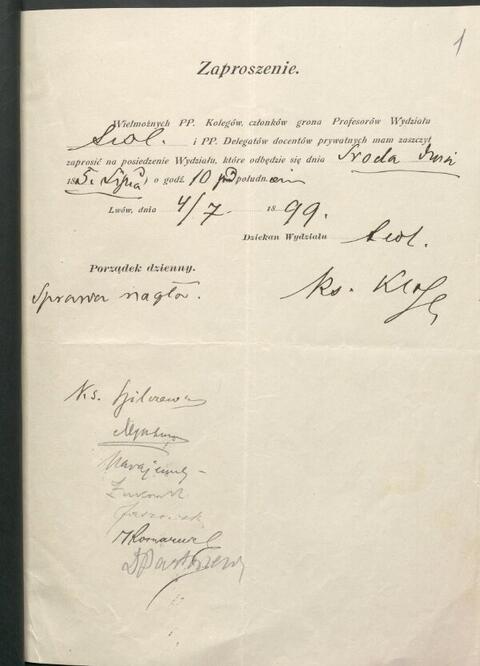 1
Zaproszenie.
Wielmożnych PP. Kolegów, członków grona Profesorów Wydziału
teol. i PP. Delegatów docentów prywatnych mam zaszczyt
zaprosić na posiedzenie Wydziału, które odbędzie się dnia Środa
18 5. Lipca o godz. 10 przedpołudniem
Lwów, dnia 4/7. 1899.
Dziekan Wydziału teol.
Porządek dzienny.
Sprawa nagła.
ks. Kloss
Ks. Bilczewski
Komarnicki
DBartoszewski